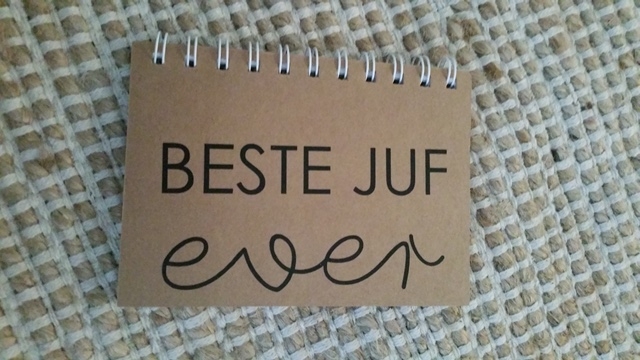 BESTE JUF
ever